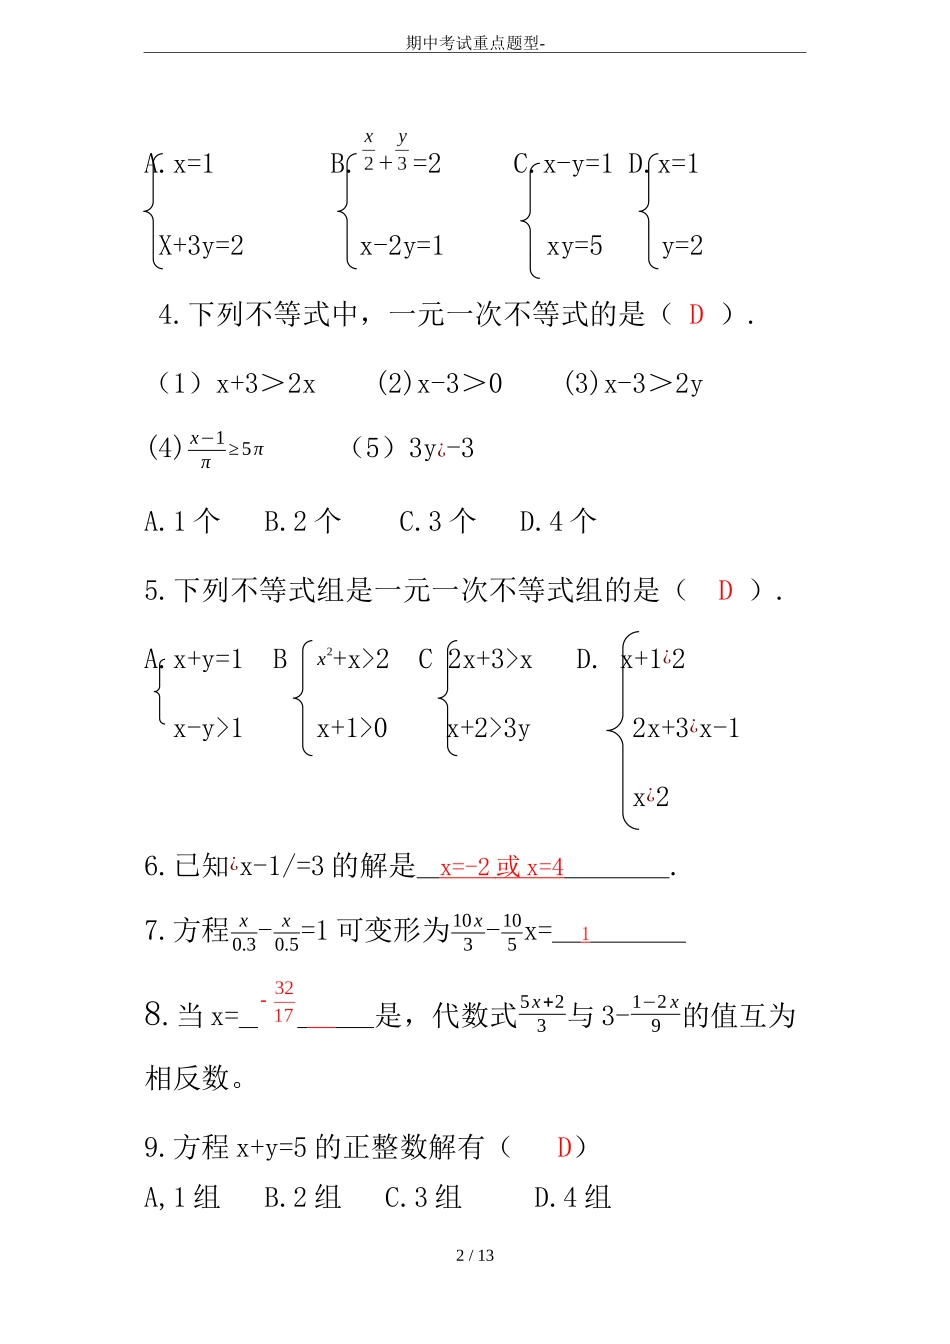 期中考试重点题型-
A.x=1 B. x/2+y/3=2 C.x-y=1 D.x=1
X+3y=2 x-2y=1 xy=5 y=2
4.下列不等式中，一元一次不等式的是（ D ）.
（1）x+3＞2x (2)x-3＞0 (3)x-3＞2y
(4) x−1/π ≥5π （5）3y¿-3
A.1个 B.2个 C.3个 D.4个
5.下列不等式组是一元一次不等式组的是（ D ）.
A.x+y=1 B x²+x>2 C 2x+3>x D. x+1¿2
x-y>1 x+1>0 x+2>3y 2x+3¿x-1
x¿2
6.已知¿x-1/=3的解是__x=-2或x=4________.
7.方程 x/0.3 - x/0.5 =1可变形为 10x/3 - 10/5 x=__1_______
8.当x=_ -32/17 _____是，代数式 5x+2/3 与 3- 1−2x/9 的值互为
相反数。
9.方程x+y=5的正整数解有（ D）
A,1组 B.2组 C.3组 D.4组
2 / 13